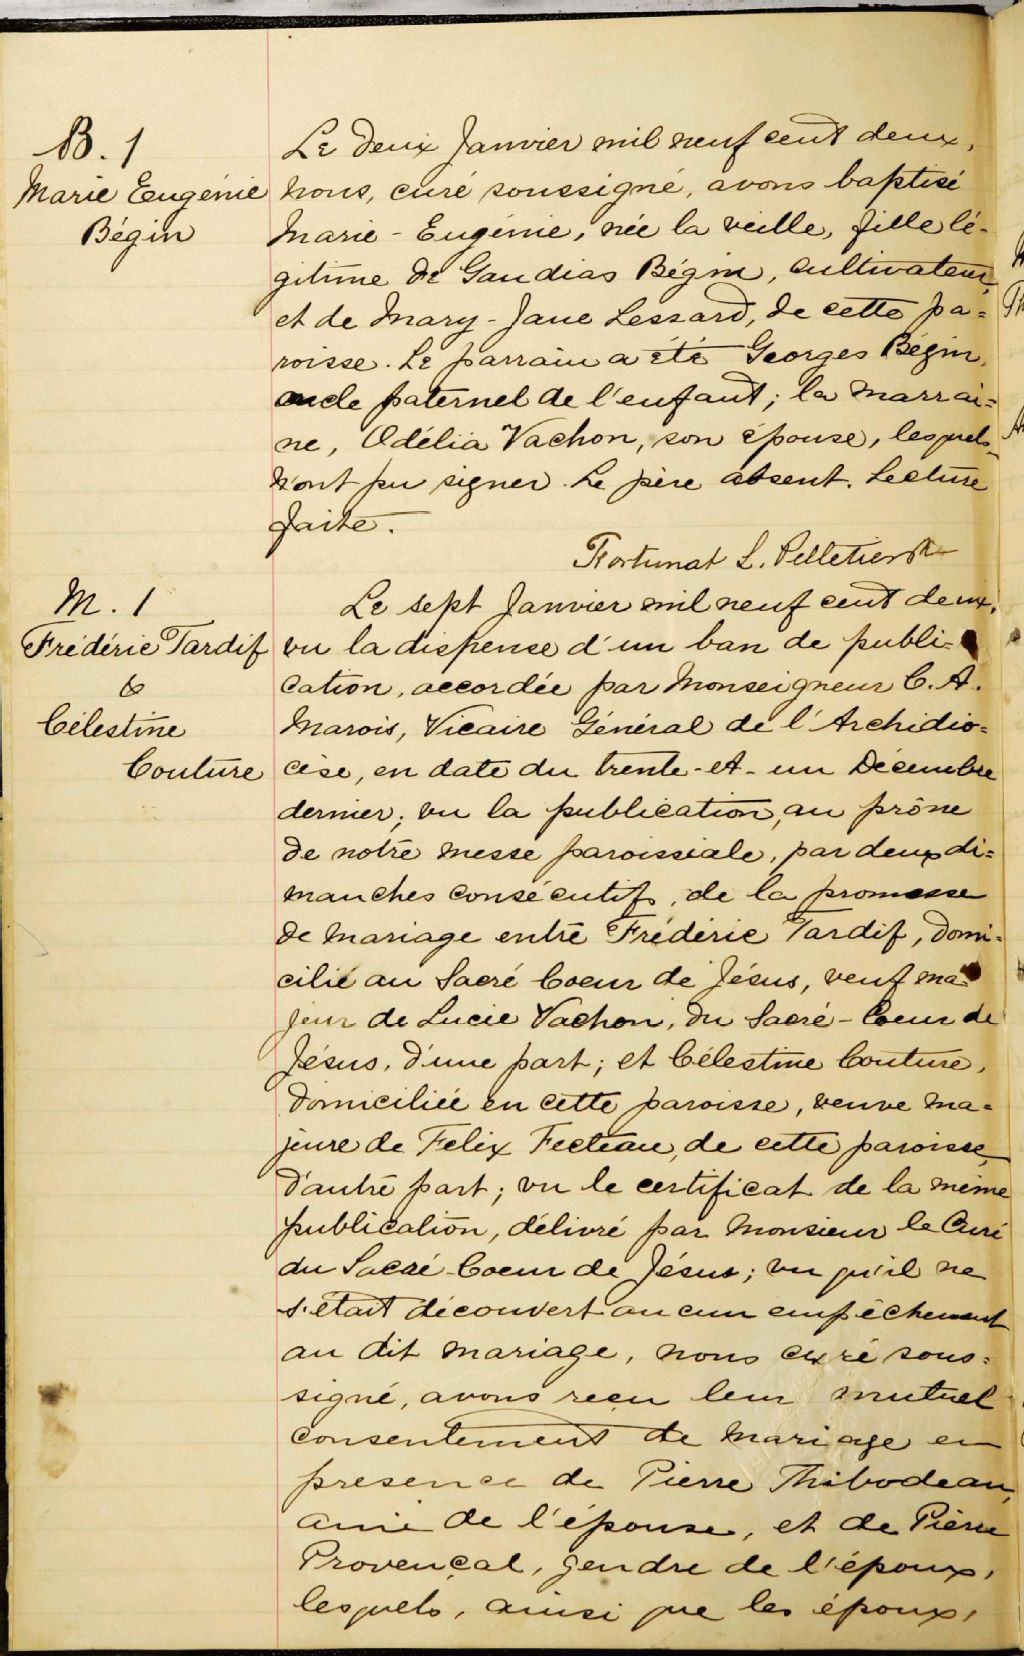 B. 1
Marie Eugénie
Bégin
Le deux Janvier mil neuf cent deux,
nous, curé soussigné, avons baptisé
Marie-Eugénie, née la veille, fille lé-
gitime de Gaudias Bégin, cultivateur,
et de Mary-Jane Lessard, de cette pa=
roisse. Le parrain a été Georges Bégin,
oncle paternel de l'enfant; la marrai=
ne, Odélia Vachon, son épouse, lesquels
n'ont pu signer. Le père absent. Lecture
faite.
Fortunat L. Pelletier
M. 1
Frédéric Tardif
&
Célestine
Couture
Le sept Janvier mil neuf cent deux,
vu la dispense d'un ban de publi=
cation, accordée par Monseigneur C. A.
Marois, Vicaire Général de l'Archidio=
cèse, en date du trente-et-un Décembre
dernier; vu la publication, au prône
de notre messe paroissiale, par deux di=
manches consécutifs, de la promesse
de mariage entre Frédéric Tardif, domi=
cilié au Sacré Coeur de Jésus, veuf ma=
jeur de Lucie Vachon, du Sacré-Coeur de
Jésus, d'une part; et Célestine Couture,
domiciliée en cette paroisse, veuve ma=
jeure de Felix Fecteau, de cette paroisse,
d'autre part; vu le certificat de la même
publication, délivré par Monsieur le Curé
du Sacré Coeur de Jésus; vu qu'il ne
s'était découvert aucun empêchement
au dit mariage, nous curé sous=
signé, avons reçu leur mutuel
consentement de mariage en
presence de Pierre Thibodeau,
ami de l'épouse, et de Pierre
Provençal, gendre de l'époux,
lesquels, ainsi que les époux,